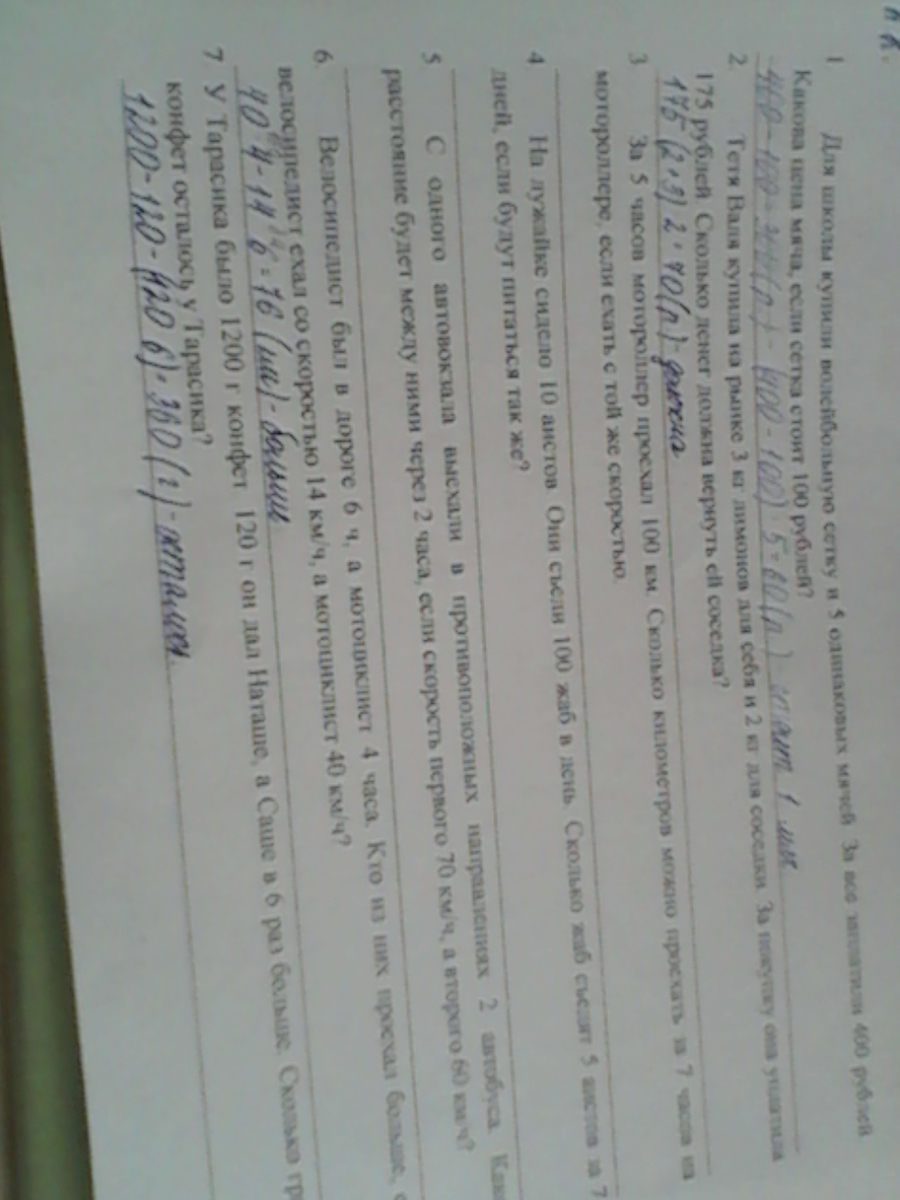 1 Для школы купили волейбольную сетку и 5 одинаковых мячей. За все заплатили 400 рублей
Какова цена мяча, если сетка стоит 100 рублей?
(400-100):5=60(р)
2 Тетя Валя купила на рынке 3 кг лимонов для себя и 2 кг для соседки. За покупку она уплатила
175 рублей. Сколько денег должна вернуть ей соседка?
175:(2+3)·2=70(р)-должна
3 За 5 часов мотороллер проехал 100 км. Сколько километров можно проехать за 7 часов на
мотороллере, если ехать с той же скоростью.
4 На лужайке сидело 10 аистов. Они съели 100 жаб в день. Сколько жаб съедят 5 аистов за 7
дней, если будут питаться так же?
5 С одного автовокзала выехали в противоположных направлениях 2 автобуса.
расстояние будет между ними через 2 часа, если скорость первого 70 км/ч, а второго 60 км/ч?
6 Велосипедист был в дороге 6 ч, а мотоциклист 4 часа. Кто из них проехал больше,
велосипедист ехал со скоростью 14 км/ч, а мотоциклист 40 км/ч?
40·4-14·6=76(км)-больше
7 У Тарасика было 1200 г конфет. 120 г он дал Наташе, а Саше в 6 раз больше. Сколько гр
конфет осталось у Тарасика?
1200-120-(120·6)=360(г)-осталось